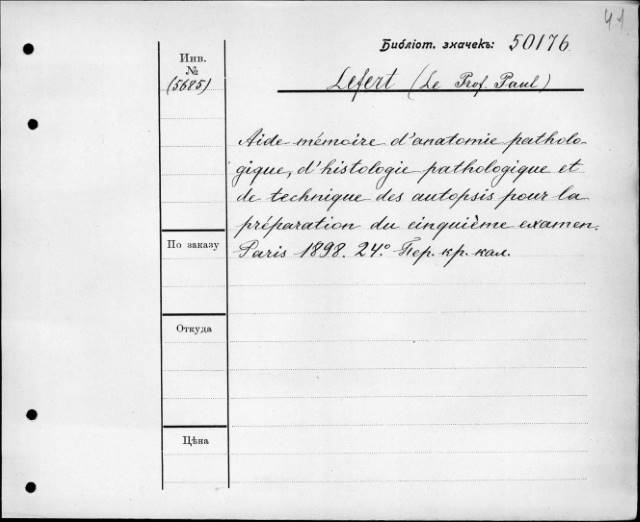 41
Библіот. значекъ: 50176
Инв.
№
(5685)
Lefert (Le Prof. Paul)
Aide-mémoire d'anatomie patholo-
gique, d'histologie pathologique et
de technique des autopsis pour la
préparation du cinquième examen.
Paris 1898. 24.° Пер. кр. кал.
По заказу
Откуда
Цѣна